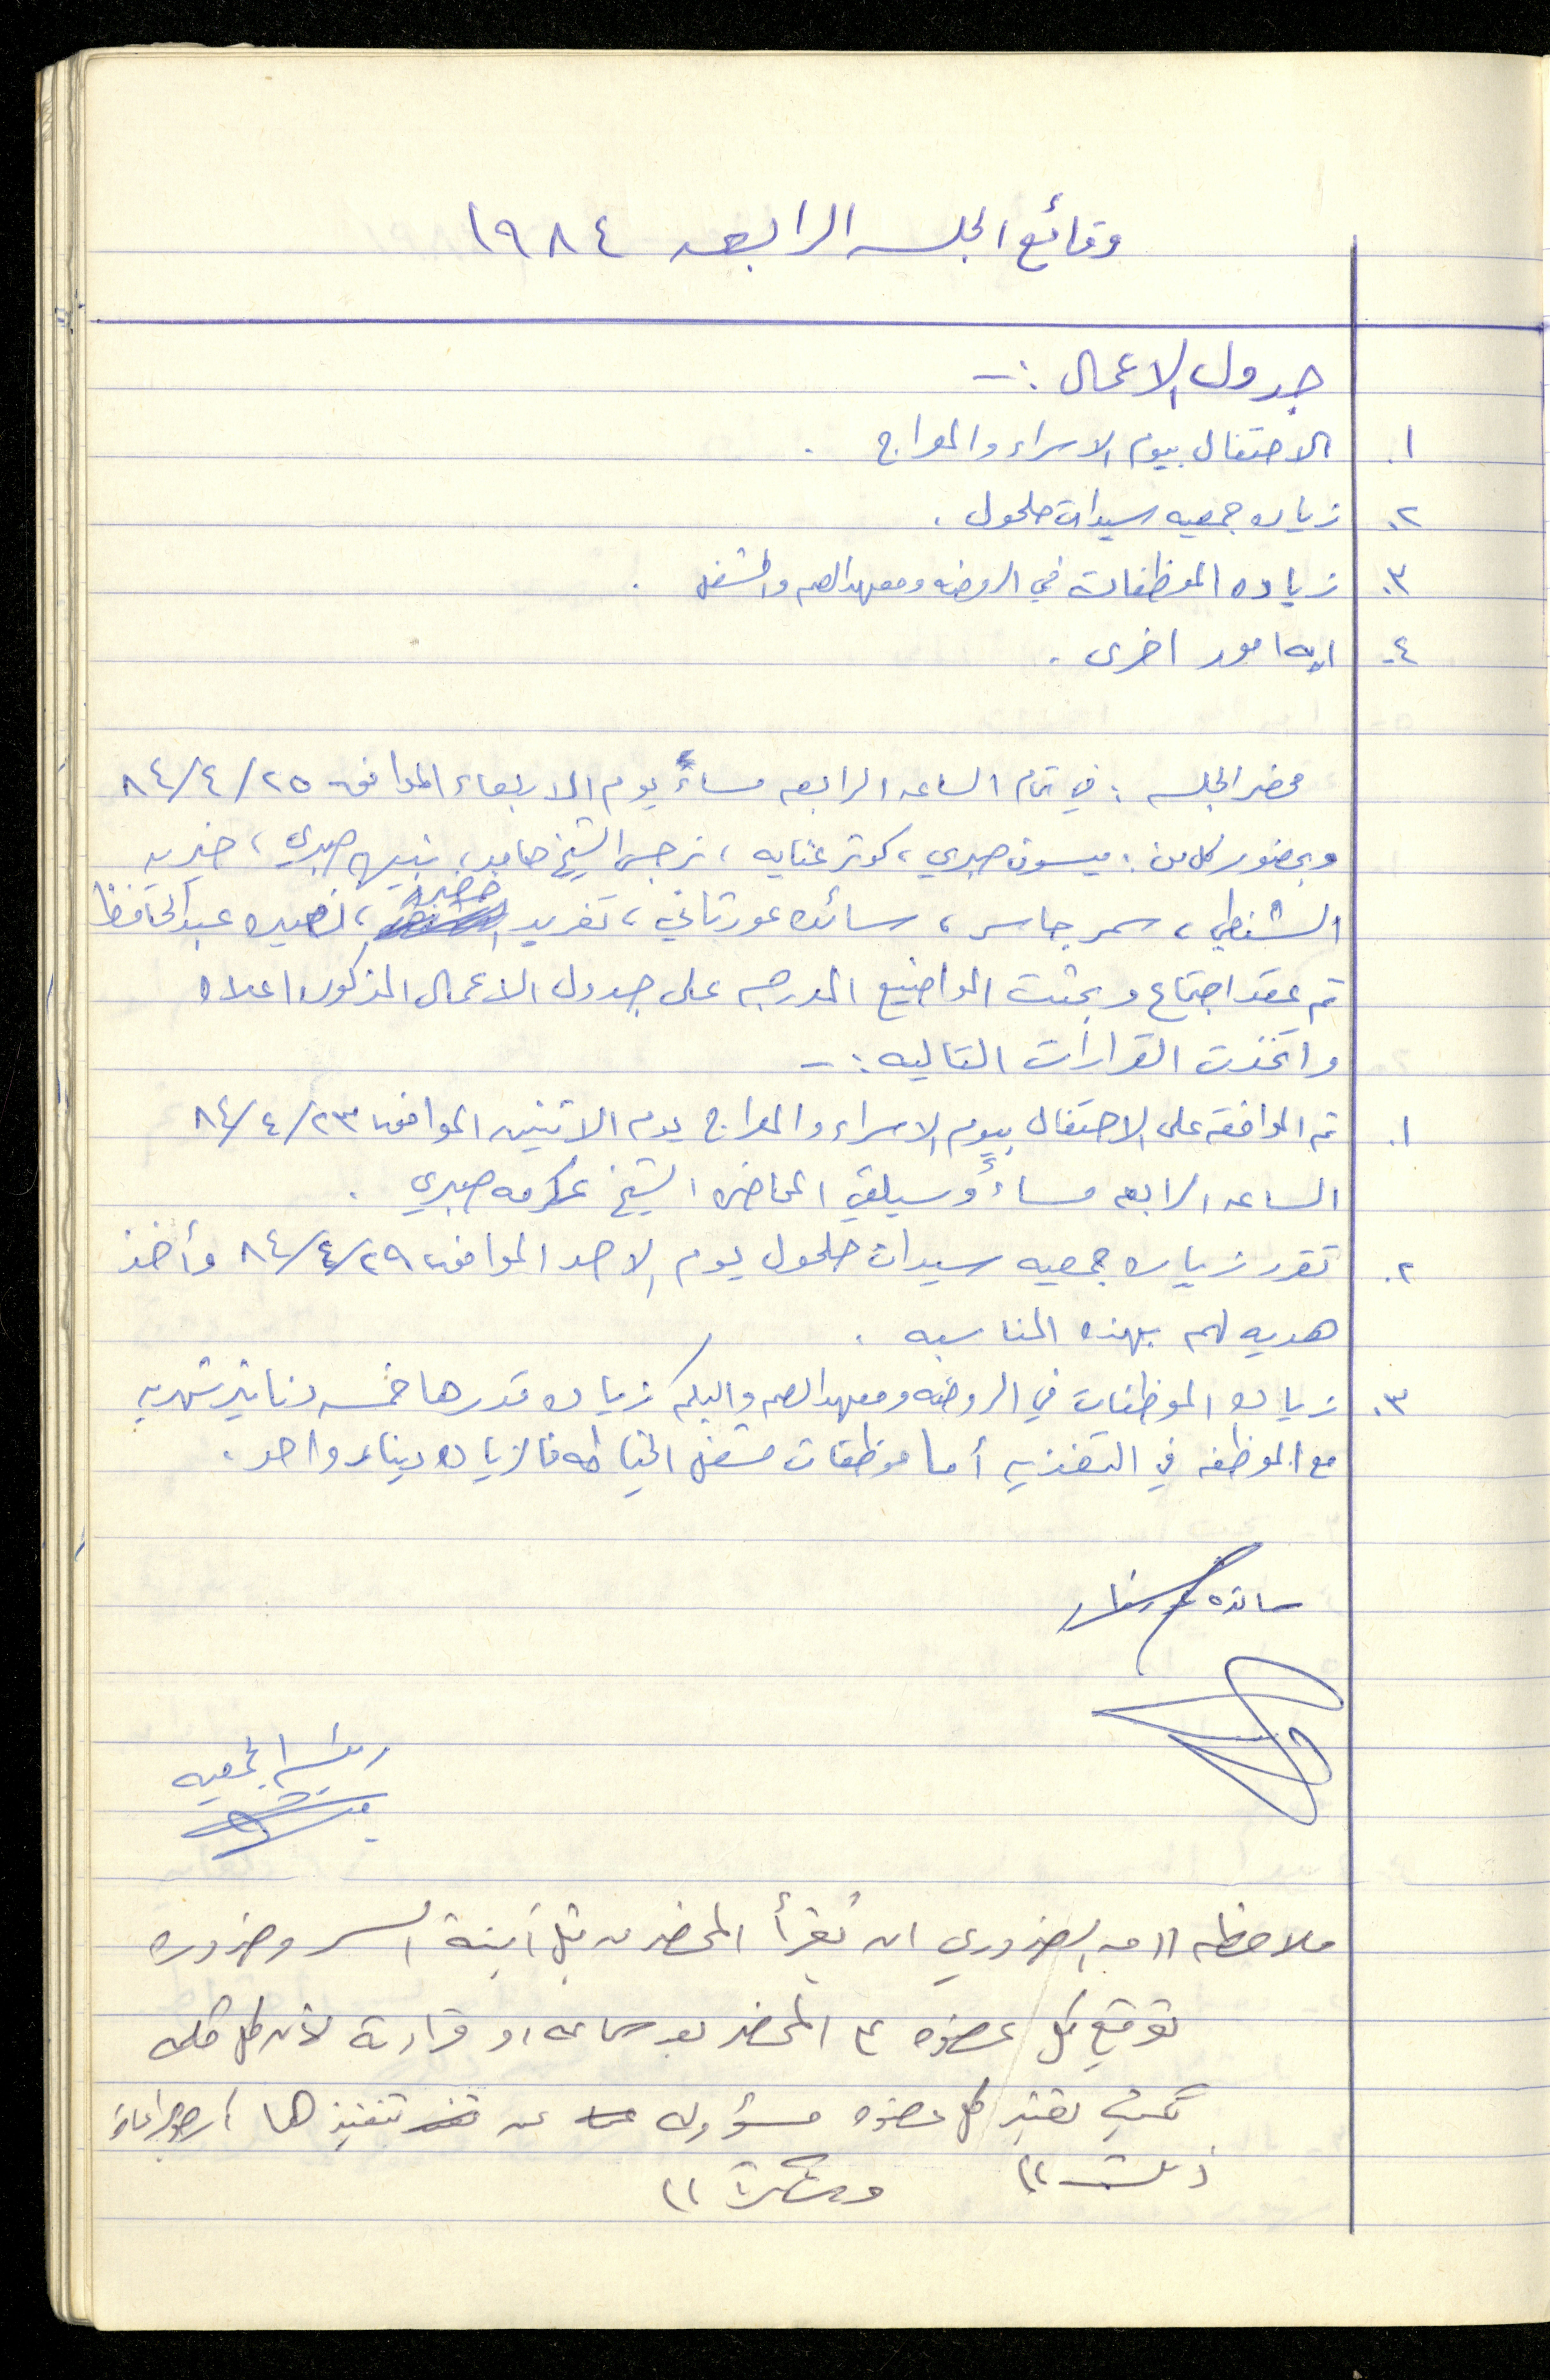 وقائع الجلسه الرابعه ١٩٨٤
جدول الاعمال :-
١. الاحتفال بيوم الاسراء والمعراج .
٢. زياره جمعيه سيدات حلحول .
٣. زياده الموظفات في الروضه ومعهد الصم والمشغل .
٤. ايه امور اخرى .
محضر الجلسه : في تمام الساعه الرابعه مساءً يوم الاربعاء الموافق ٢٥/٤/٨٤
وبحضور كل من : ميسون صبري ، كوثر عنايه ، نرجس الشيخ حامد ، صبري ، خيريه
الشنطي ، سمر جاسر ، سائده عورتاني ، تغريد خضر ، نصيره عبد الحافظ
تم عقد اجتماع وبحثت المواضيع المدرجه على جدول الاعمال المذكور اعلاه
واتخذت القرارات التاليه :-
١. تم الموافقه على الاحتفال بيوم الاسراء والمعراج يوم الاثنين الموافق ٢٣/٤/٨٤
الساعه الرابعه مساءً وسيلقي المحاضره الشيخ عكرمه صبري .
٢. تقرر زياره جمعيه سيدات حلحول يوم الاحد الموافق ٢٩/٤/٨٤ وأخذ
هديه لهم بهذه المناسبه .
٣. زياده الموظفات في الروضه ومعهد الصم والبكم زياده قدرها خمسه دنانير شهريه
مع الموظفه في التغذيه أما موظفات مشغل الخياطه فالزياده دينار واحد .
سائده
رئيسه الجمعيه
ملاحظه )) من الضروري ان تقرأ المحضر من قبل أمينة السر وضروره
توقيع كل عضوه المحضر بعد سماعه او قرائته لأن كل كلمه
تكتب تعتبر كل عضوه مسؤوله عن تنفيذها
ذلك ))
وشكراً ))